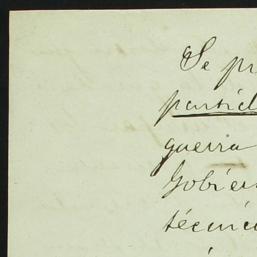 Se pr
partid
guerra
Gobier
técnic